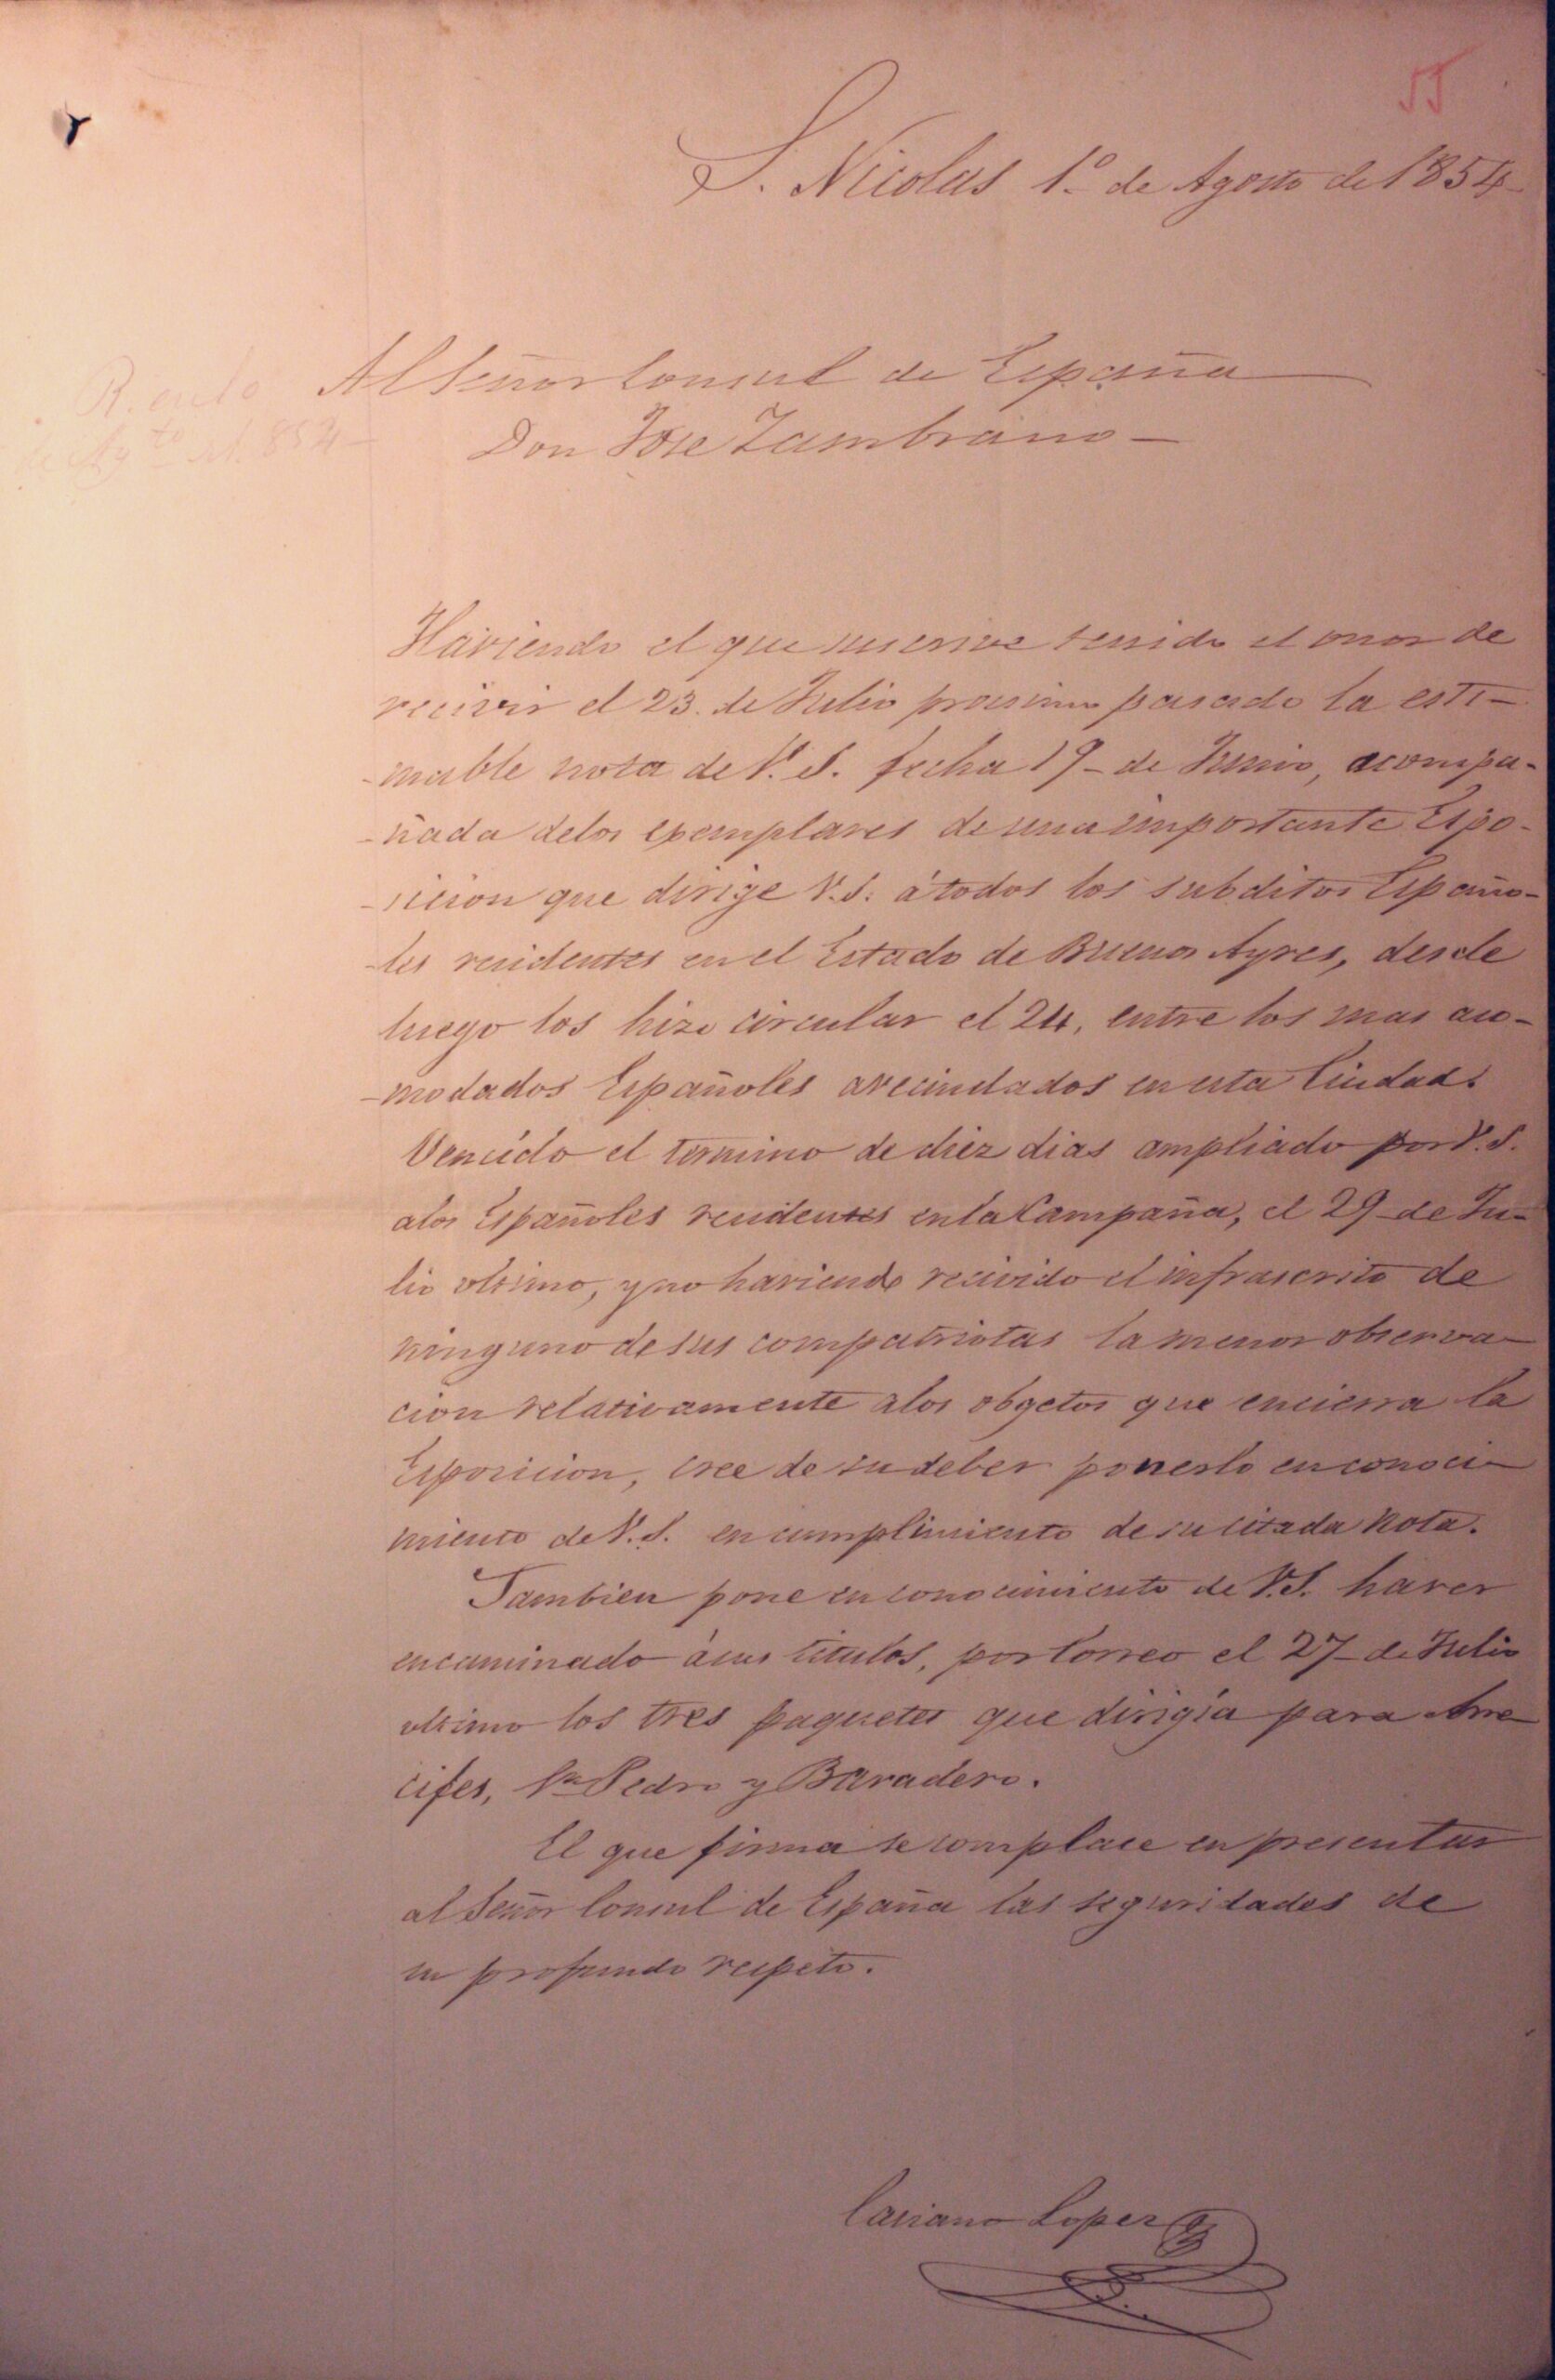 55
S. Nicolas 1º de Agosto de 1854
Al Señor Consul de España
Don Jose Zambrano
Haviendo el que suscrive tenido el onor de
recivir el 23. de Julio proximo pasado la esti-
-mable nota de V. S. fecha 19 de Junio, acompa-
-ñada delos exemplares de una importante Espo-
-sicion que dirige V. S. á todos los subditos Españo-
-les residentes en el Estado de Buenos Ayres, desde
luego los hize circular el 24, entre los mas aco-
-modados Españoles avecindados en esta Ciudad.
Vencido el termino de diez dias ampliado por V. S.
alos Españoles residentes en la Campaña, el 29 de Ju-
lio ultimo, y no haviendo recivido el infrascrito de
ninguno de sus compatriotas la menor observa-
cion relativamente alos obgetos que encierra la
Esposicion, cree de su deber ponerlo en conoci-
miento de V. S. en cumplimiento de su citada nota.
Tambien pone en conocimiento de V. S. haver
encaminado á sus titulos, por Correo el 27 de Julio
ultimo los tres paquetes que dirigia para Arre-
cifes, Sn Pedro y Baradero.
El que firma se complace en presentar
al Señor Consul de España las seguridades de
su profundo respeto.
Casiano Lopez